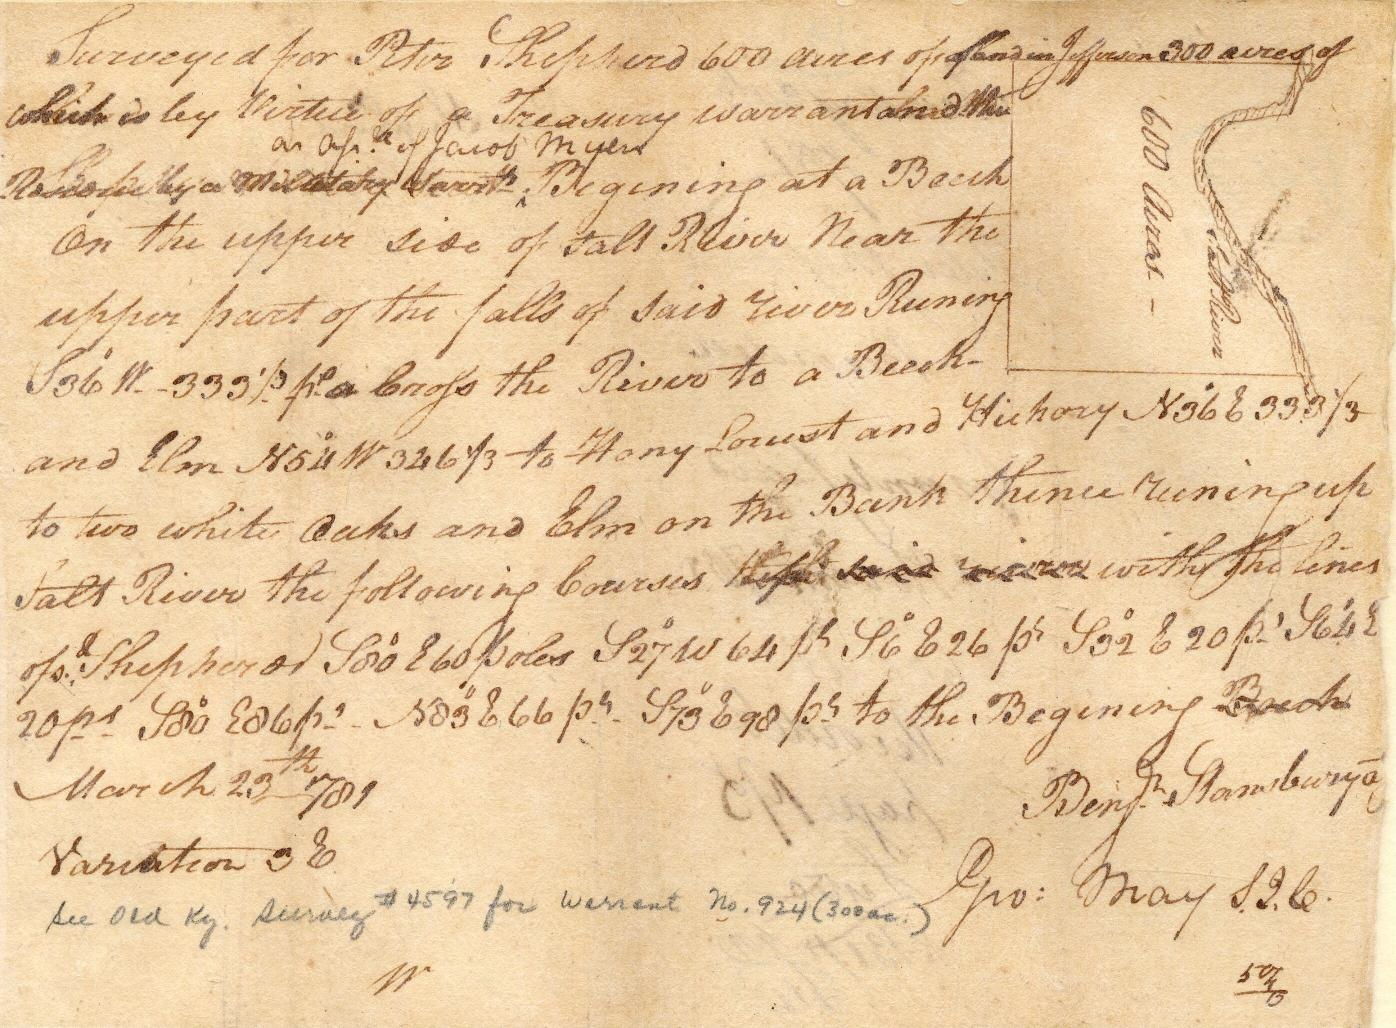 Surveyed for Peter Shepherd 600 acres of land in Jefferson 300 acres of
which is by Virtue of a Treasury warrant and the
as Asse. of Jacob Myers
Residue by a Military Warrt. ^ Begining at a Beech
On the upper side of Salt River Near the
upper part of the falls of said river Runing
S36°W - 333⅓ po. a Cross the River to a Beech
and Elm N54°W 346⅓ to Hony Locust and Hickory N36°E 333⅓
to two white Oaks and Elm on the Bank thence runing up
Salt River the following Courses said river with the lines
of sd. Shepherd S80°E 60 poles S27°W 64 ps S6°E 26 ps S32°E 20 ps S64°E
20 ps S80°E 86 ps - N83°E 66 ps - S73°E 98 ps to the Begining Beech
March 23th 1781
Benjn. Stansbury
Variation 3 E
Geo: May S.J.C.
See Old Ky. Survey #4597 for Warrant No. 924 (300 ac.)
W
600 Acres -
Salt River